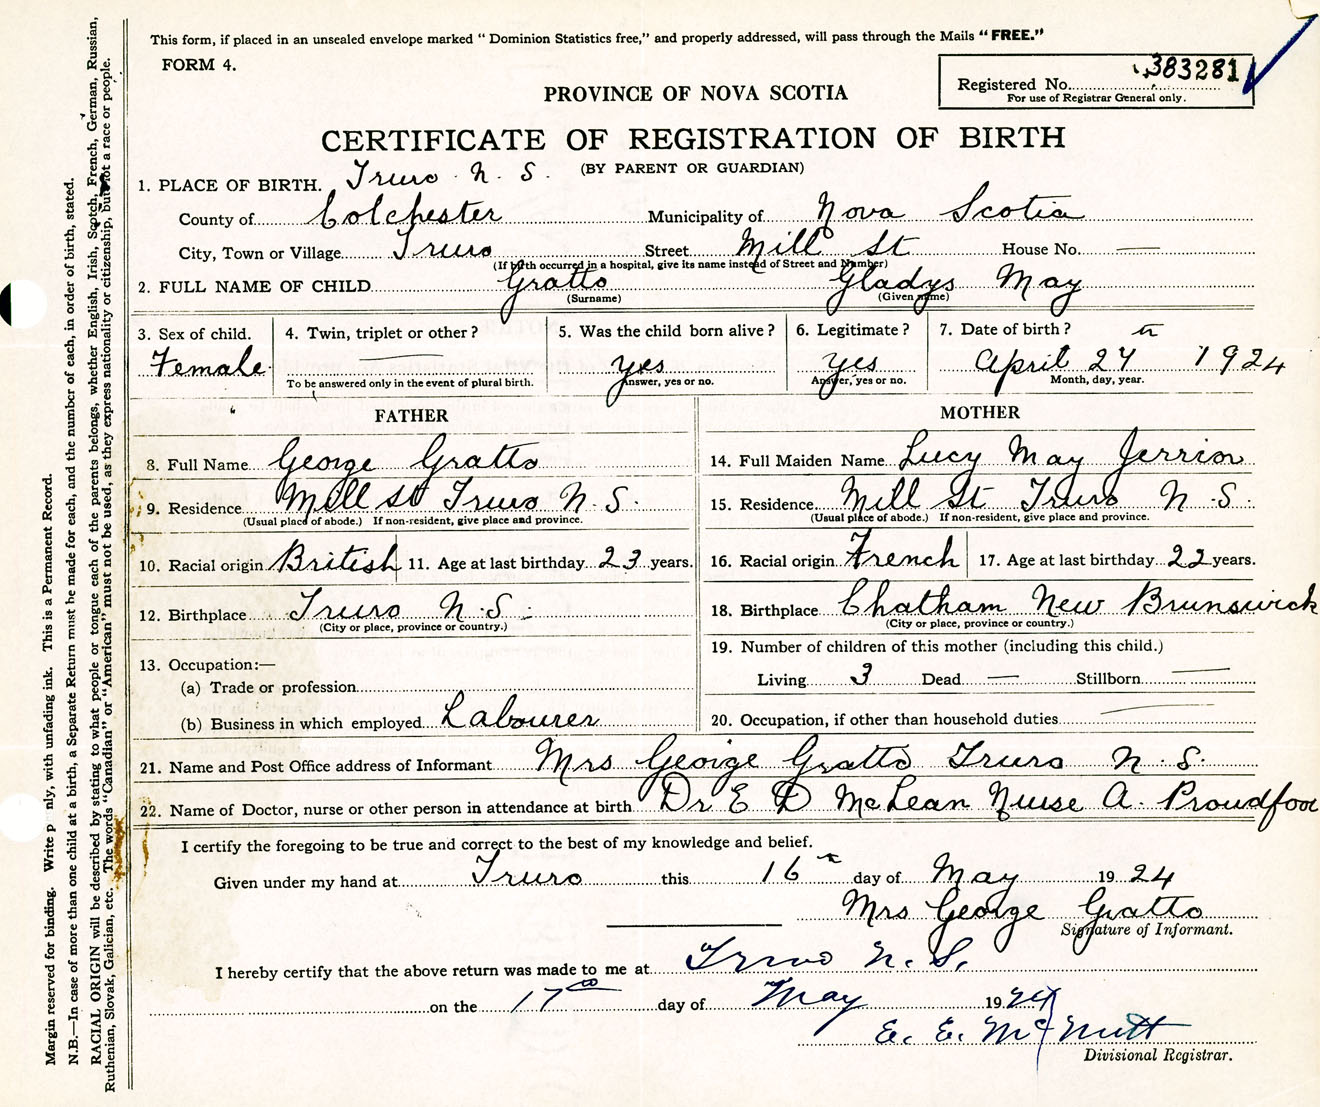 This form, if placed in an unsealed envelope marked " Dominion Statistics free," and properly addressed, will pass through the Mails "FREE."
FORM 4.
Registered No. 383281
For use of Registrar General only.
PROVINCE OF NOVA SCOTIA
CERTIFICATE OF REGISTRATION OF BIRTH
(BY PARENT OR GUARDIAN)
1. PLACE OF BIRTH. Truro N. S.
County of Colchester Municipality of Nova Scotia
City, Town or Village Truro Street Mill St House No. —
(If birth occurred in a hospital, give its name instead of Street and Number)
2. FULL NAME OF CHILD Gratto Gladys May
(Surname) (Given name)
3. Sex of child. 4. Twin, triplet or other? 5. Was the child born alive? 6. Legitimate? 7. Date of birth?
Female — yes yes April 24 th 1924
To be answered only in the event of plural birth. Answer, yes or no. Answer, yes or no. Month, day, year.
FATHER MOTHER
8. Full Name George Gratto 14. Full Maiden Name Lucy May
9. Residence Mill St Truro N.S. 15. Residence Mill St Truro N.S.
(Usual place of abode.) If non-resident, give place and province. (Usual place of abode.) If non-resident, give place and province.
10. Racial origin British 11. Age at last birthday 23 years. 16. Racial origin French 17. Age at last birthday 22 years.
12. Birthplace Truro N.S. 18. Birthplace Chatham New Brunswick
(City or place, province or country.) (City or place, province or country.)
13. Occupation:— 19. Number of children of this mother (including this child.)
(a) Trade or profession Living 3 Dead — Stillborn —
(b) Business in which employed Labourer 20. Occupation, if other than household duties —
21. Name and Post Office address of Informant Mrs George Gratto Truro N.S.
22. Name of Doctor, nurse or other person in attendance at birth Dr E D McLean Nurse A. Proudfoo
I certify the foregoing to be true and correct to the best of my knowledge and belief.
Given under my hand at Truro this 16 day of May 1924
Mrs George Gratto
Signature of Informant.
I hereby certify that the above return was made to me at Truro N.S.
on the 17 day of May 1924
E. E. McNutt
Divisional Registrar.
Margin reserved for binding. Write p nly, with unfading ink. This is a Permanent Record.
N.B.—In case of more than one child at a birth, a Separate Return must be made for each, and the number of each, in order of birth, stated.
RACIAL ORIGIN will be described by stating to what people or tongue each of the parents belongs, whether English, Irish, Scotch, French, German, Russian,
Ruthenian, Slovak, Galician, etc. The words "Canadian" or "American" must not be used, as they express nationality or citizenship, but not a race or people.